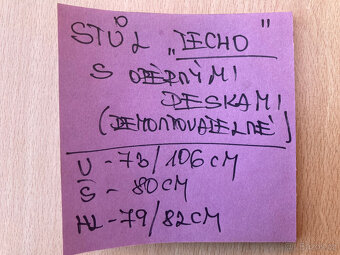 STŮL „TECHO"
S OPĚRNÝMI
DESKAMI
(DEMONTOVATELNÉ)
V - 73/106CM
Š - 80CM
HL - 79/82CM